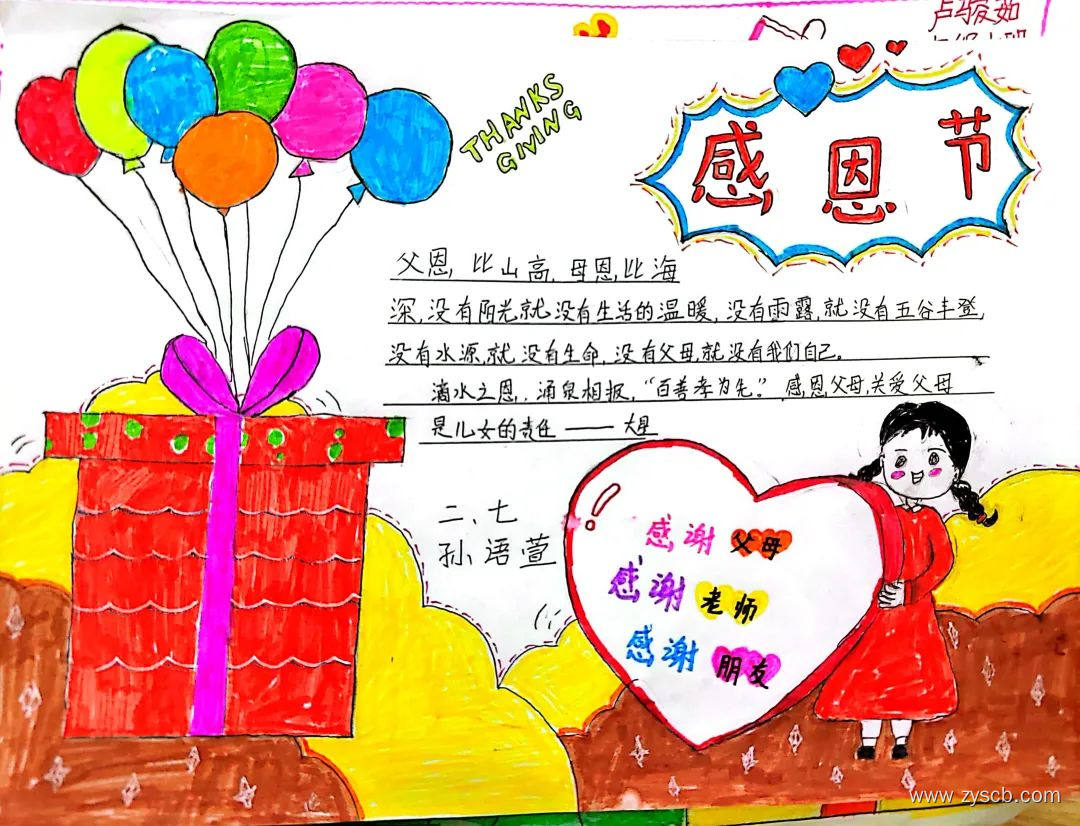 卢骏茹
THANKS
GIVING
感恩节
父恩,比山高,母恩,比海
深,没有阳光,就没有生活的温暖,没有雨露,就没有五谷丰登,
没有水源,就没有生命,没有父母,就没有我们自己。
滴水之恩,涌泉相报,“百善孝为先”?感恩父母,关爱父母
是儿女的责任——大星
二、七
孙语萱
感谢父母
感谢老师
感谢朋友
www.zyscb.com